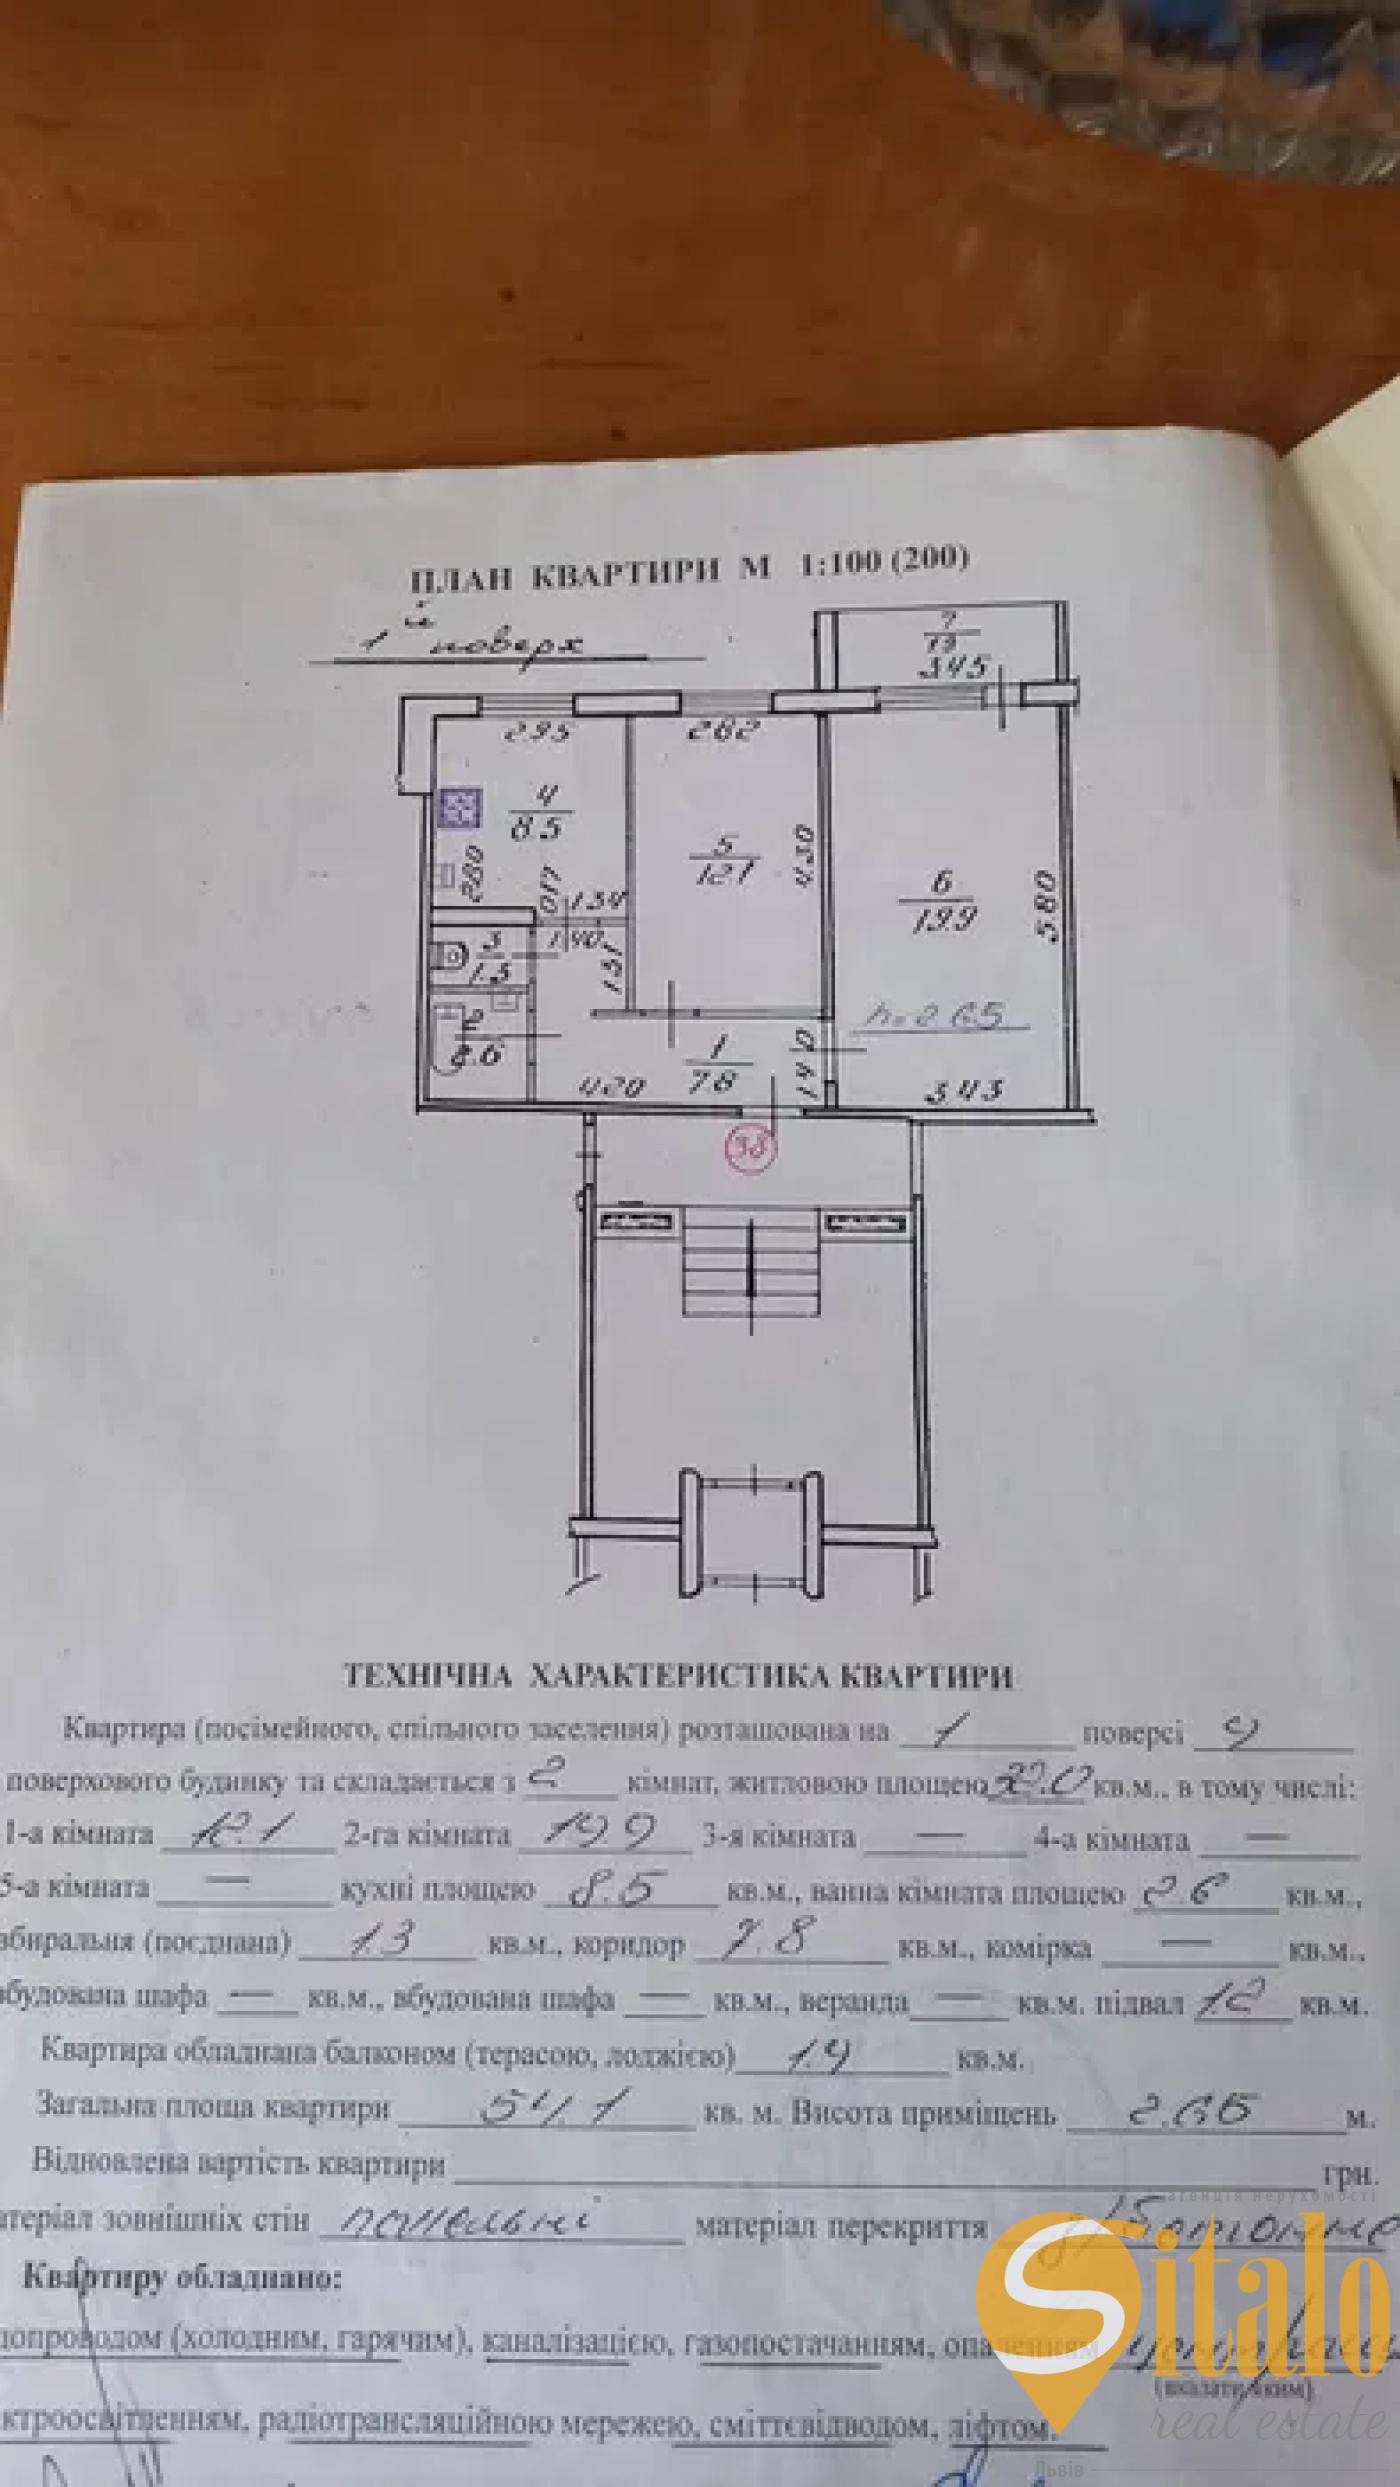 ПЛАН КВАРТИРИ М 1:100 (200)
1й поверх
7
1.9
3.45
2.95
2.82
4
8.5
5
12.1
4.30
6
19.9
5.80
2.80
1.34
3
1.3
1.40
1.51
h=2.65
2
2.6
1
7.8
1.40
4.20
3.43
ТЕХНІЧНА ХАРАКТЕРИСТИКА КВАРТИРИ
Квартира (посімейного, спільного заселення) розташована на 1 поверсі 9
поверхового будинку та складається з 2 кімнат, житловою площею 32.0 кв.м., в тому числі:
1-а кімната 12.1 2-га кімната 19.9 3-я кімната — 4-а кімната —
5-а кімната — кухні площею 8.5 кв.м., ванна кімната площею 2.6 кв.м.,
вбиральня (поєднана) 1.3 кв.м., коридор 7.8 кв.м., комірка — кв.м.,
вбудована шафа — кв.м., вбудована шафа — кв.м., веранда — кв.м. підвал 1.2 кв.м.
Квартира обладнана балконом (терасою, лоджією) 1.9 кв.м.
Загальна площа квартири 54.1 кв. м. Висота приміщень 2.65 м.
Відновлена вартість квартири грн.
атеріал зовнішніх стін панельні матеріал перекриття з/бетонне
Квартиру обладнано:
допроводом (холодним, гарячим), каналізацією, газопостачанням, опаленням
(вказати, яким)
ктроосвітленням, радіотрансляційною мережею, сміттєвідводом, ліфтом.
агенція нерухомості
Sitalo
real estate
Львів